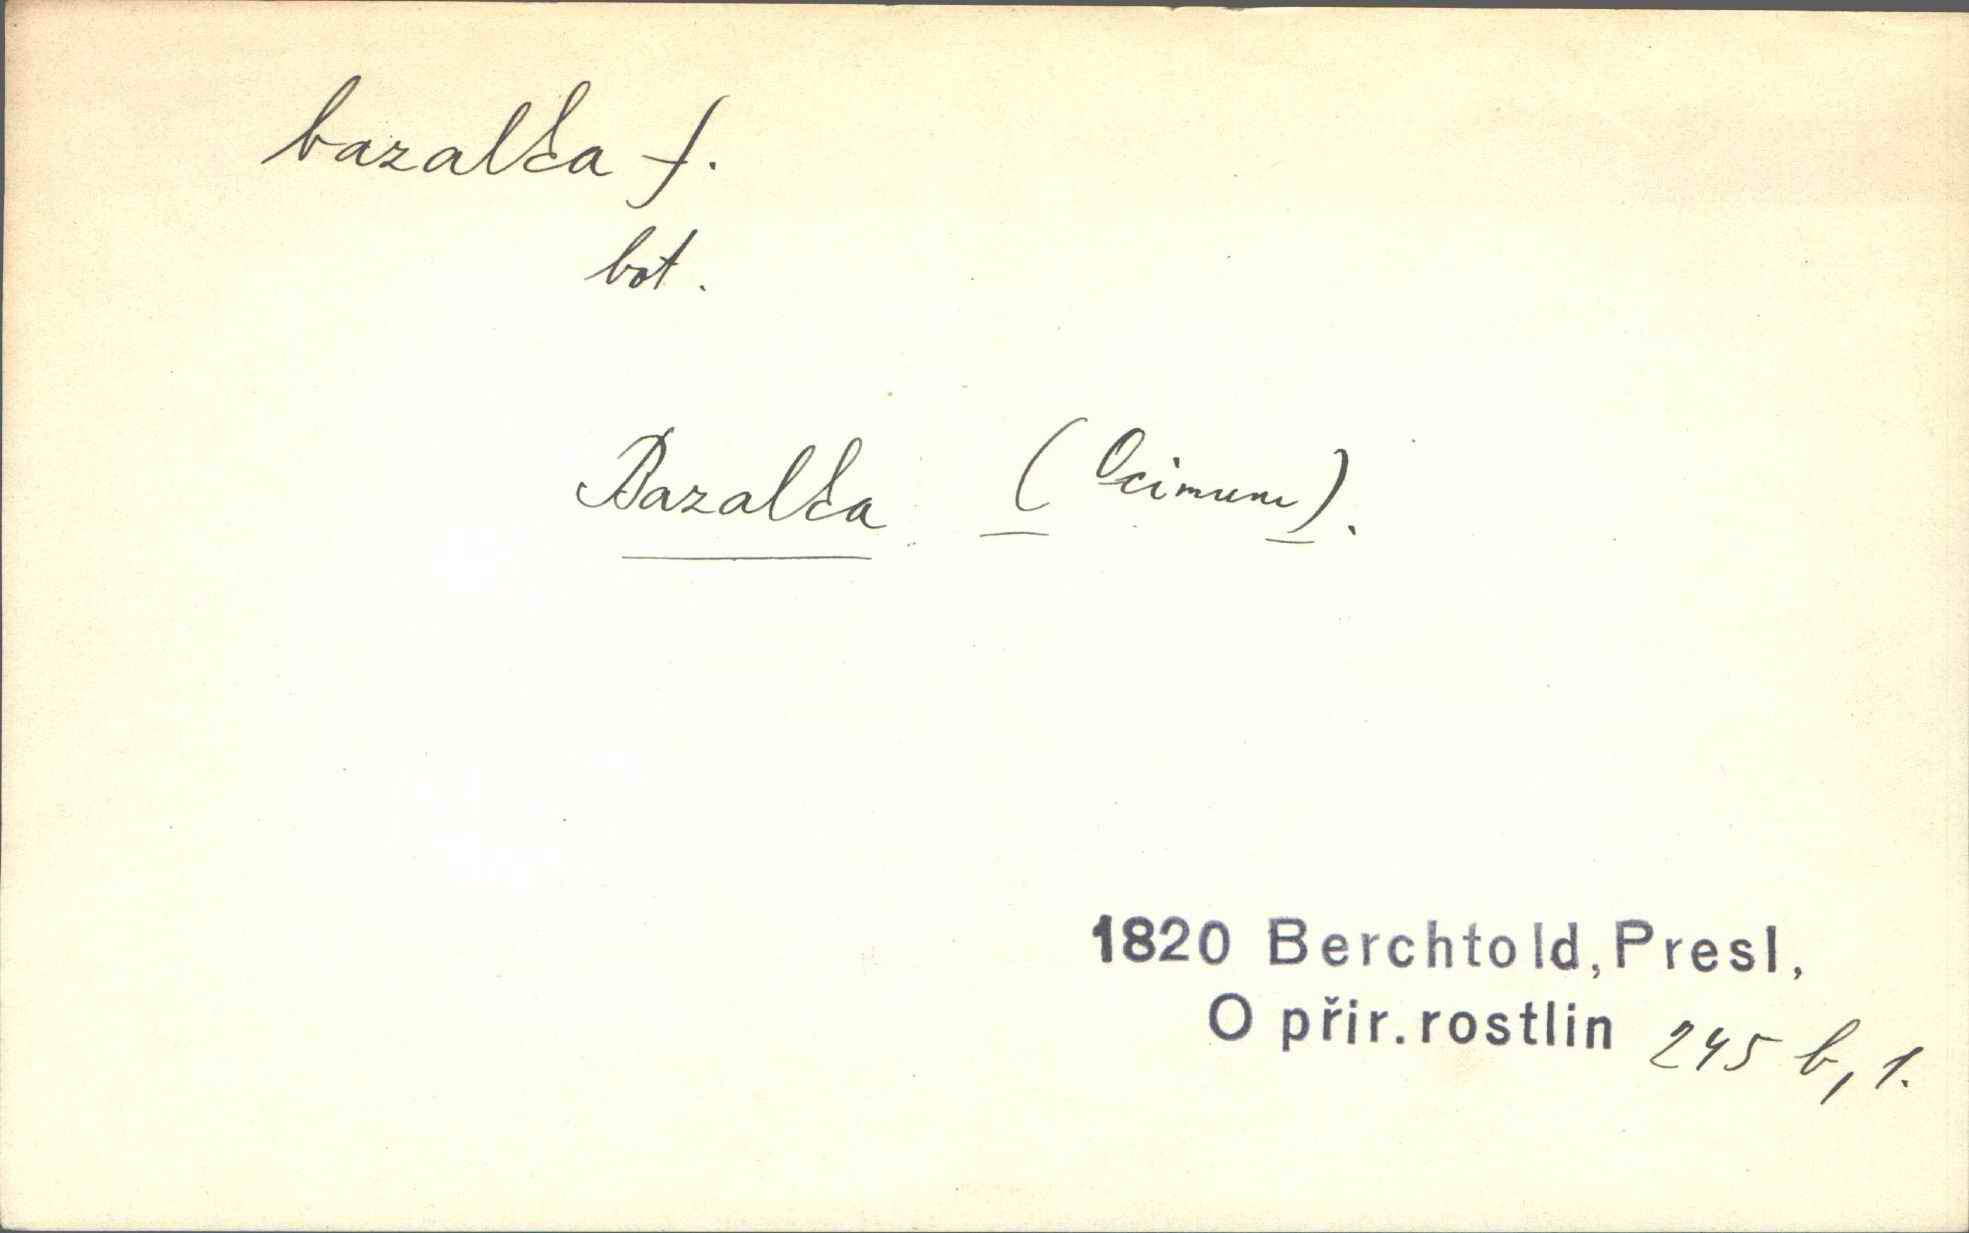 bazalka f.
bot.
Bazalka (Ocimum).
1820 Berchtold, Presl,
O přir. rostlin 245 b, 1.